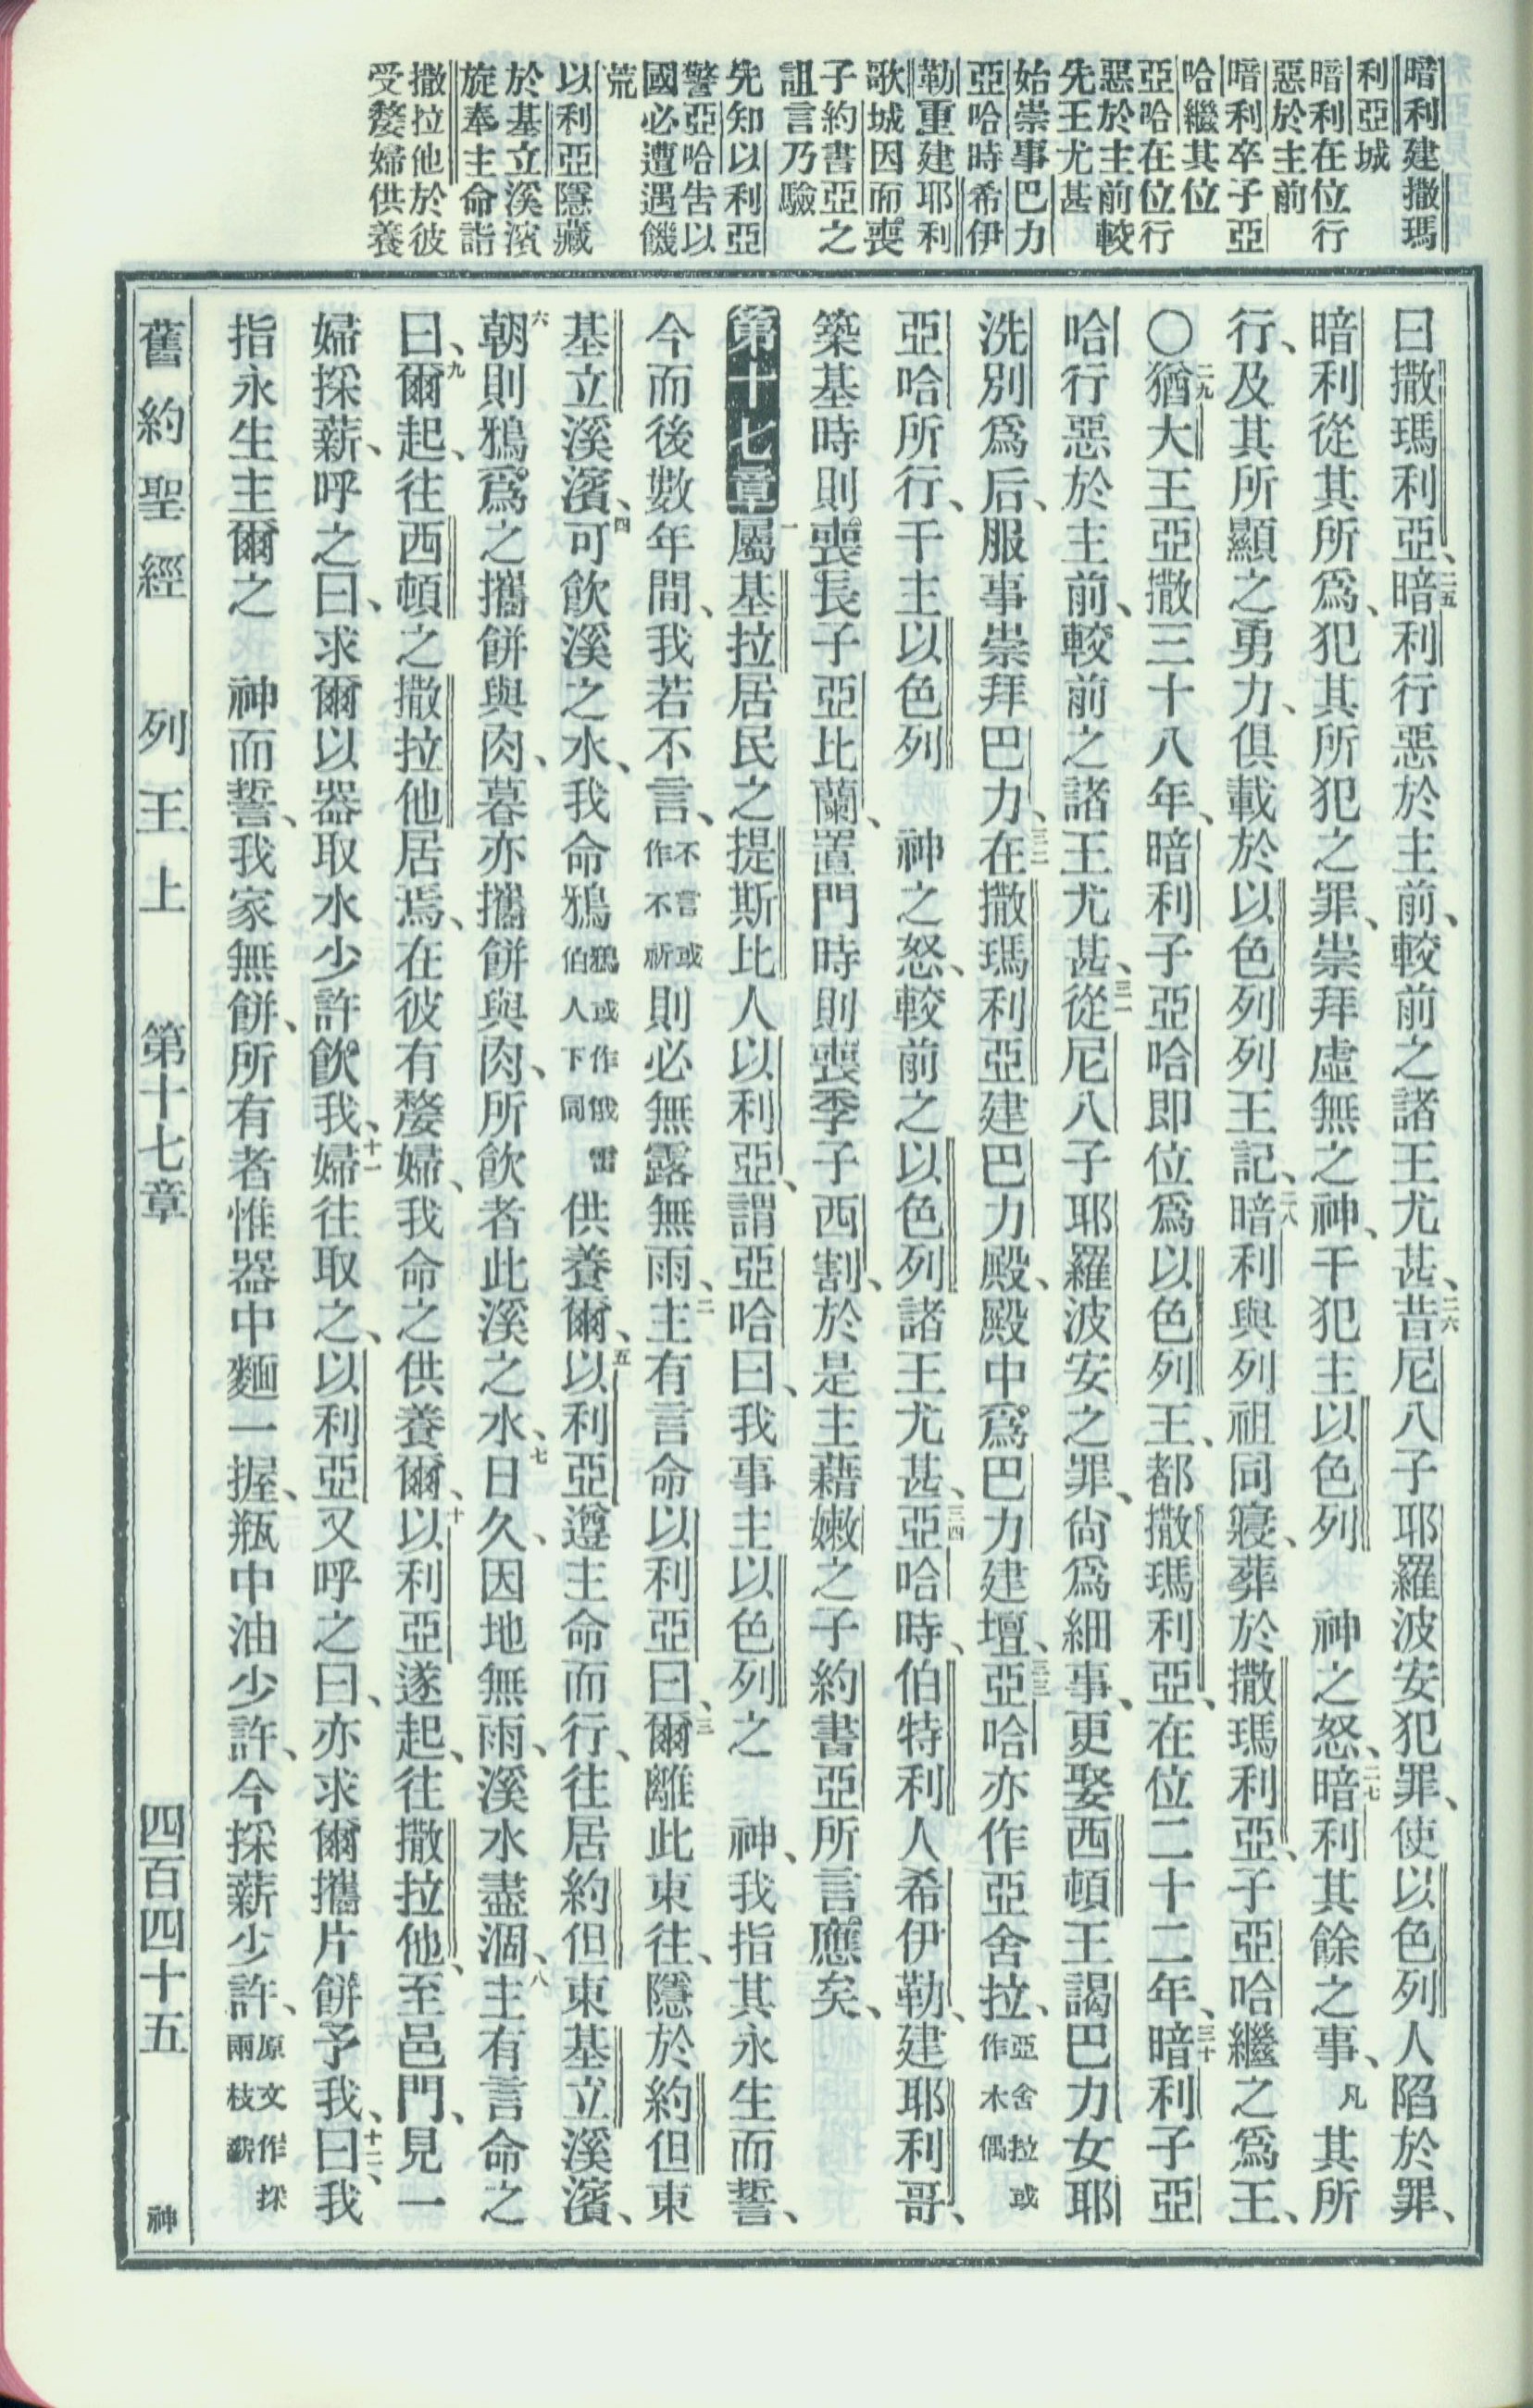 暗利建撒瑪
利亞城
暗利在位行
惡於主前
暗利卒子亞
哈繼其位
亞哈在位行
惡於主前較
先王尤甚
始崇事巴力
亞哈時希伊
勒重建耶利
歌城因而喪
子約書亞之
詛言乃驗
先知以利亞
警亞哈告以
國必遭遇饑
荒
以利亞隱藏
於基立溪濱
旋奉主命詣
撒拉他於彼
受嫠婦供養
曰撒瑪利亞、二五暗利行惡於主前、較前之諸王尤甚、二六昔尼八子耶羅波安犯罪、使以色列人陷於罪、
暗利從其所爲、犯其所犯之罪、崇拜虛無之神、干犯主以色列　神之怒、二七暗利其餘之事、凡其所
行、及其所顯之勇力、俱載於以色列列王記、二八暗利與列祖同寢、葬於撒瑪利亞、子亞哈繼之爲王、
〇二九猶大王亞撒三十八年、暗利子亞哈即位爲以色列王、都撒瑪利亞、在位二十二年、三十暗利子亞
哈行惡於主前、較前之諸王尤甚、三一從尼八子耶羅波安之罪、尙爲細事、更娶西頓王謁巴力女耶
洗別爲后、服事崇拜巴力、三二在撒瑪利亞建巴力殿、殿中爲巴力建壇、三三亞哈亦作亞舍拉、亞舍拉或作木偶
亞哈所行、干主以色列　神之怒、較前之以色列諸王尤甚、三四亞哈時、伯特利人希伊勒、建耶利哥、
築基時則喪長子亞比蘭、置門時則喪季子西割、於是主藉嫩之子約書亞所言應矣、
第十七章一屬基拉居民之提斯比人以利亞、謂亞哈曰、我事主以色列之　神、我指其永生而誓、
今而後數年間、我若不言、不言或作不祈則必無露無雨、二主有言命以利亞曰、三爾離此東往、隱於約但東
基立溪濱、四可飲溪之水、我命鴉鴉或作俄雷伯人下同供養爾、五以利亞遵主命而行、往居約但東基立溪濱、
六朝則鴉爲之攜餅與肉、暮亦攜餅與肉、所飲者此溪之水、七日久、因地無雨、溪水盡涸、八主有言命之
曰、九爾起、往西頓之撒拉他居焉、在彼有嫠婦、我命之供養爾、十以利亞遂起、往撒拉他、至邑門、見一
婦採薪、呼之曰、求爾以器取水少許飮我、十一婦往取之、以利亞又呼之曰、亦求爾攜片餅予我、十二曰、我
指永生主爾之　神而誓、我家無餅、所有者惟器中麵一握、瓶中油少許、今採薪少許、原文作採兩枝薪
舊約聖經　列王上　第十七章　四百四十五　神